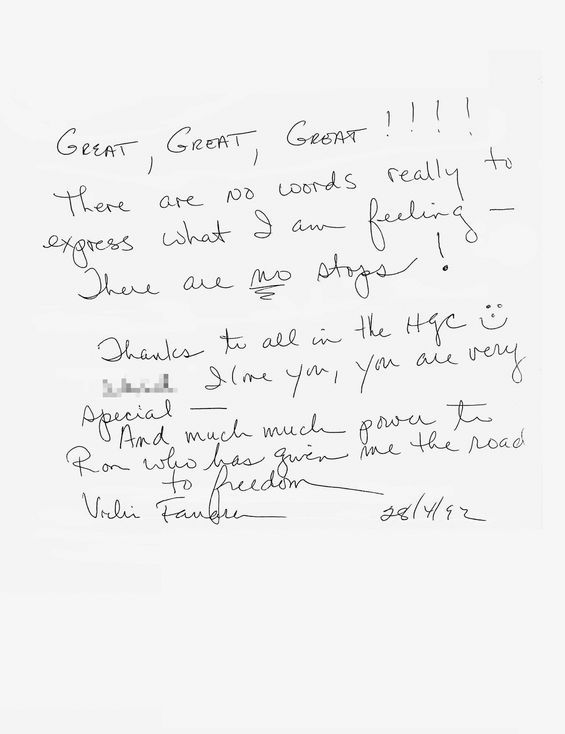 GREAT, GREAT, GREAT !!!!
There are no words really to
express what I am feeling —
There are no stops!
Thanks to all in the HGC
I love you, you are very
special —
And much much power to
Ron who has given me the road
to freedom
28/4/92